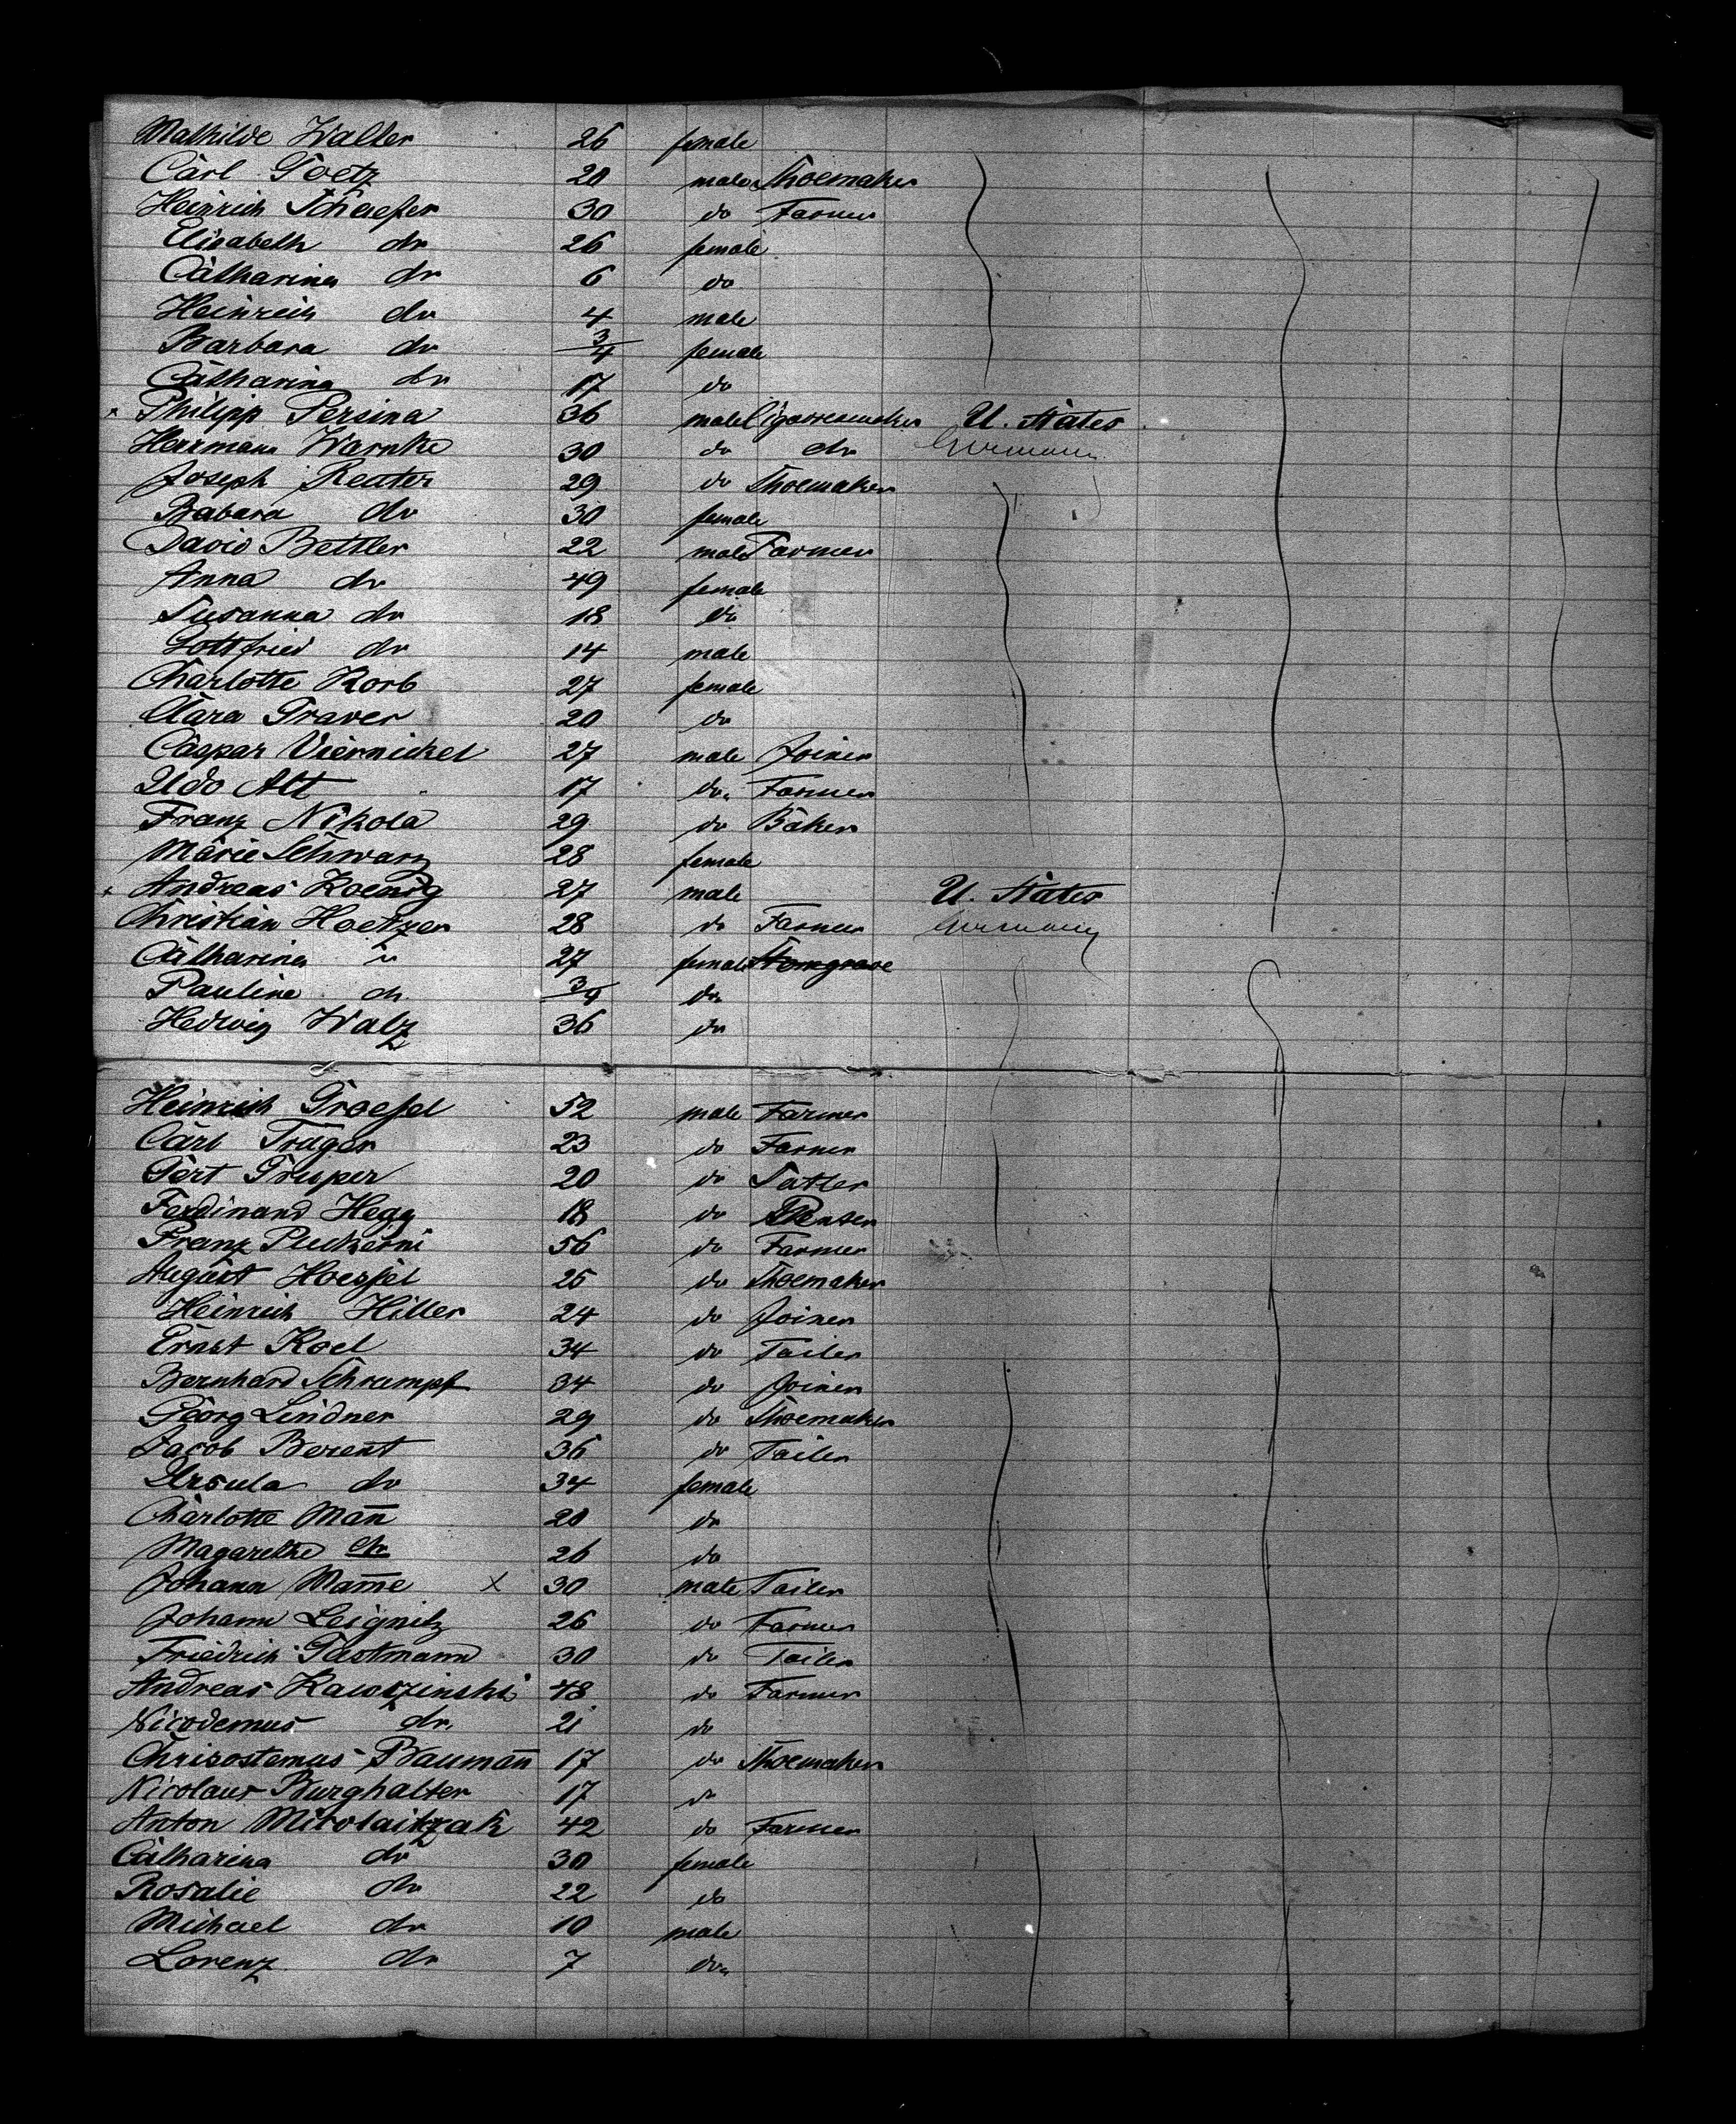 Mathilde Walter 26 female
Carl Goetz 20 male Shoemaker
Heinrich Schaefer 30 do Farmer
Elisabeth do 26 female
Catharina do 6 do
Heinrich do 4 male
Barbara do 3/4 female
Catharina do 17 do
x Philipp Persina 36 male Cigarremaker U. States
Herrmann Warnke 30 do do Germany
Joseph Reuter 29 do Shoemaker
Babara do 30 female
David Bettler 22 male Farmer
Anna do 49 female
Susanna do 18 do
Gottfried do 14 male
Charlotte Korb 27 female
Clara Graver 20 do
Caspar Viernickel 27 male Joiner
Udo Alt 17 do Farmer
Franz Nikola 29 do Baker
Marie Schwarz 28 female
x Andreas Koenig 27 male U. States
Christian Hoetzer 28 do Farmer Germany
Catharina " 27 female
Pauline do 3/4 do
Hedwig Walz 36 do
Heinrich Groessel 52 male Farmer
Carl Träger 23 do Farmer
Gert Gruper 20 do Satler
Ferdinand Hegg 18 do
Franz Puckerni 56 do Farmer
August Hoessel 25 do Shoemaker
Heinrich Hiller 24 do Joiner
Ernst Koel 34 do Tailer
Bernhard Schrumpf 34 do Joiner
Georg Lindner 29 do Shoemaker
Jacob Berent 36 do Tailer
Ursula do 34 female
Charlotte Man̄ 20 do
Magarethe do 26 do
Johann Mam̄e x 30 male Tailer
Johann Leignitz 26 do Farmer
Friedrich Gastmann 30 do Tailer
Andreas Kawszinski 48 do Farmer
Nicodemus do 21 do
Chrisostemus Bauman̄ 17 do Shoemaker
Nicolaus Burghalter 17 do
Anton Micolaitzak 42 do Farmer
Catharina do 30 female
Rosalie do 22 do
Michael do 10 male
Lorenz do 7 do